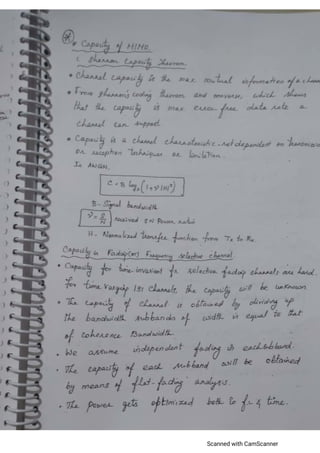 * Capacity of MIMO.
1. Shannon Capacity Theorem.
• Channel capacity is the max mutual information of a chann
• From Shannon's coding theorem and converse, which shows
that the capacity is max error free data rate a
channel can support.
• Capacity is a channel characteristic - not dependent on transmission
or reception techniques or limitation.
In AWGN,
C = B log₂(1+γ|H|²)
B - Signal bandwidth
γ = S/N received SN Power ratio
H - Normalized transfer function from Tx to Rx.
Capacity in Frequency selective channel
• Capacity for time-invariant fr selective fading channels are hard.
for time varying ISI channels, the capacity will be unknown
• The capacity of channel is obtained by dividing up
the bandwidth subbands of width is equal to that
of coherence Bandwidth.
• We assume independent fading in each subband.
• The capacity of each subband will be obtained
by means of flat-fading analysis.
• The power gets optimized both to fr & time.
Scanned with CamScanner